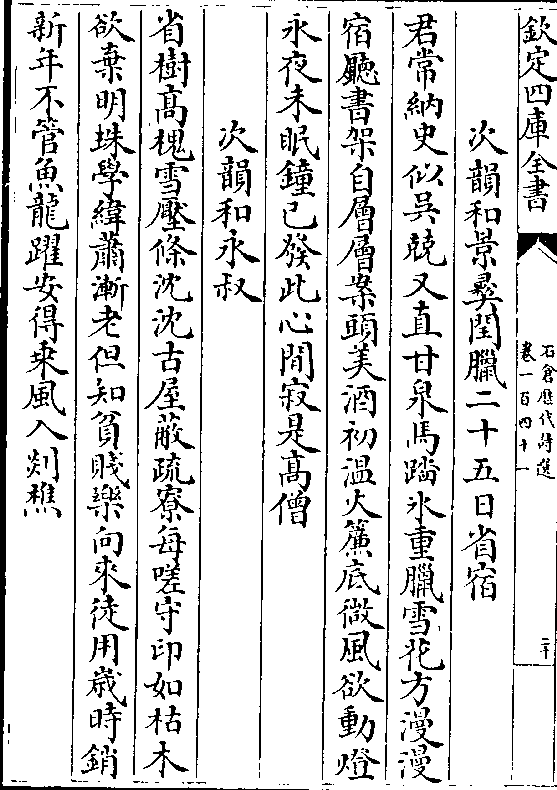 欽定四庫全書
石倉歷代詩選
卷一百四十一
二十
次韻和景彞閏臘二十五日省宿
君常納史似吳兢又直甘泉馬踏氷重臘雪花方漫漫
宿廳書架自層層案頭美酒初温火簾底微風欲動燈
永夜未眠鐘已發此心閒寂是髙僧
次韻和永叔
省樹髙槐雪壓條沈沈古屋蔽疏寮每嗟守印如枯木
欲棄明珠學緯蕭漸老但知貧賤樂向來徒用歳時銷
新年不管魚龍躍安得乗風入剡樵